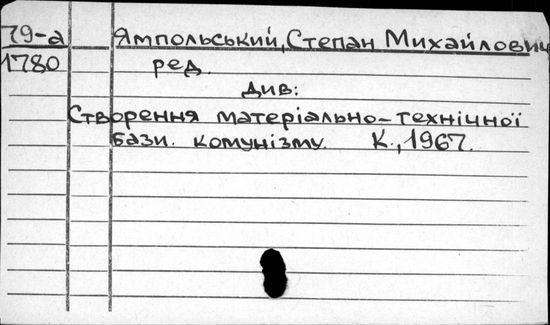 79-а Ямпольський, Степан Михайлович
1780 ред.
Див:
Створення матеріально-технічної
бази. комунізму. К., 1967.